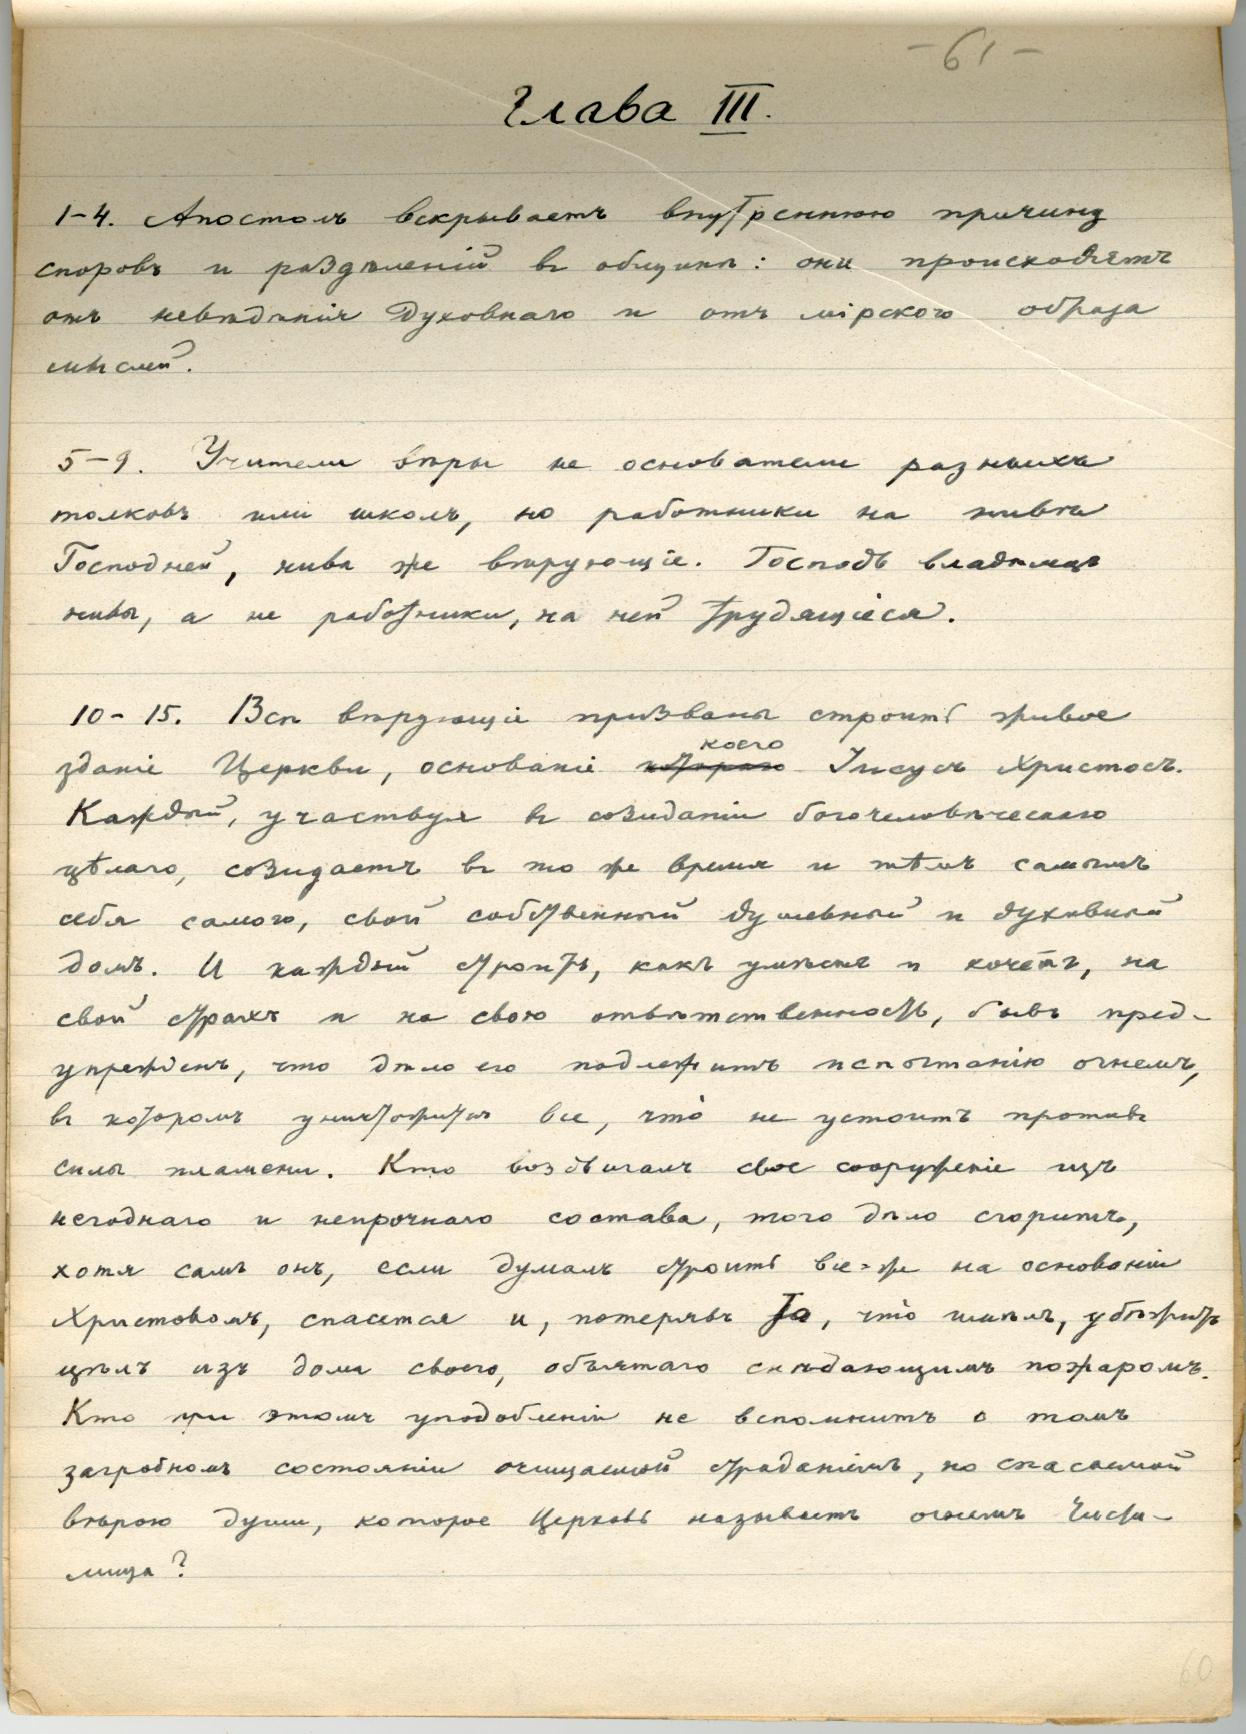 -61-
Глава III.
1-4. Апостолъ вскрываетъ внутреннюю причину
споровъ и раздѣленій въ общинѣ: они происходятъ
отъ невѣдѣнія духовнаго и отъ мірского образа
мыслей.
5-9. Учители вѣры не основатели разныхъ
толковъ или школъ, но работники на нивѣ
Господней, нива же вѣрующіе. Господь владѣлецъ
нивы, а не работники, на ней трудящіеся.
10-15. Всѣ вѣрующіе призваны строить живое
коего
зданіе Церкви, основаніе котораго Іисусъ Христосъ.
Каждый, участвуя въ созиданіи богочеловѣческаго
цѣлаго, созидаетъ въ то же время и тѣмъ самымъ
себя самого, свой собственный душевный и духовный
домъ. И каждый строитъ, какъ умѣетъ и хочетъ, на
свой страхъ и на свою отвѣтственность, бывъ пред-
упрежденъ, что дѣло его подлежитъ испытанію огнемъ,
въ которомъ уничтожится все, что̀ не устоитъ противъ
силы пламени. Кто воздвигалъ свое сооруженіе изъ
негоднаго и непрочнаго состава, того дѣло сгоритъ,
хотя самъ онъ, если думалъ строить все-же на основаніи
Христовомъ, спасется и, потерявъ то, что̀ имѣлъ, убѣжитъ
цѣлъ изъ дома своего, объятаго снѣдающимъ пожаромъ.
Кто при этомъ уподобленіи не вспомнитъ о томъ
загробномъ состояніи очищаемой страданіемъ, но спасаемой
вѣрою души, которое Церковь называетъ огнемъ Чисти-
лища?
60